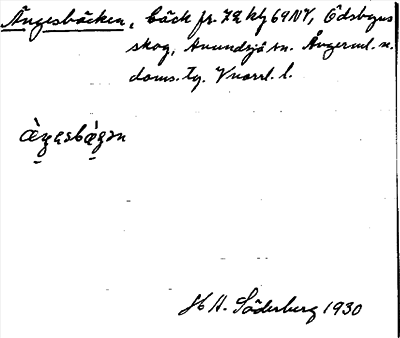 Ängesbäcken, bäck fr. 72 klg 69 NV, Ödsbyns
skog, Anundsjö sn. Ångerml. n.
doms. tg. Vnorrl. l.
H A. Söderberg 1930